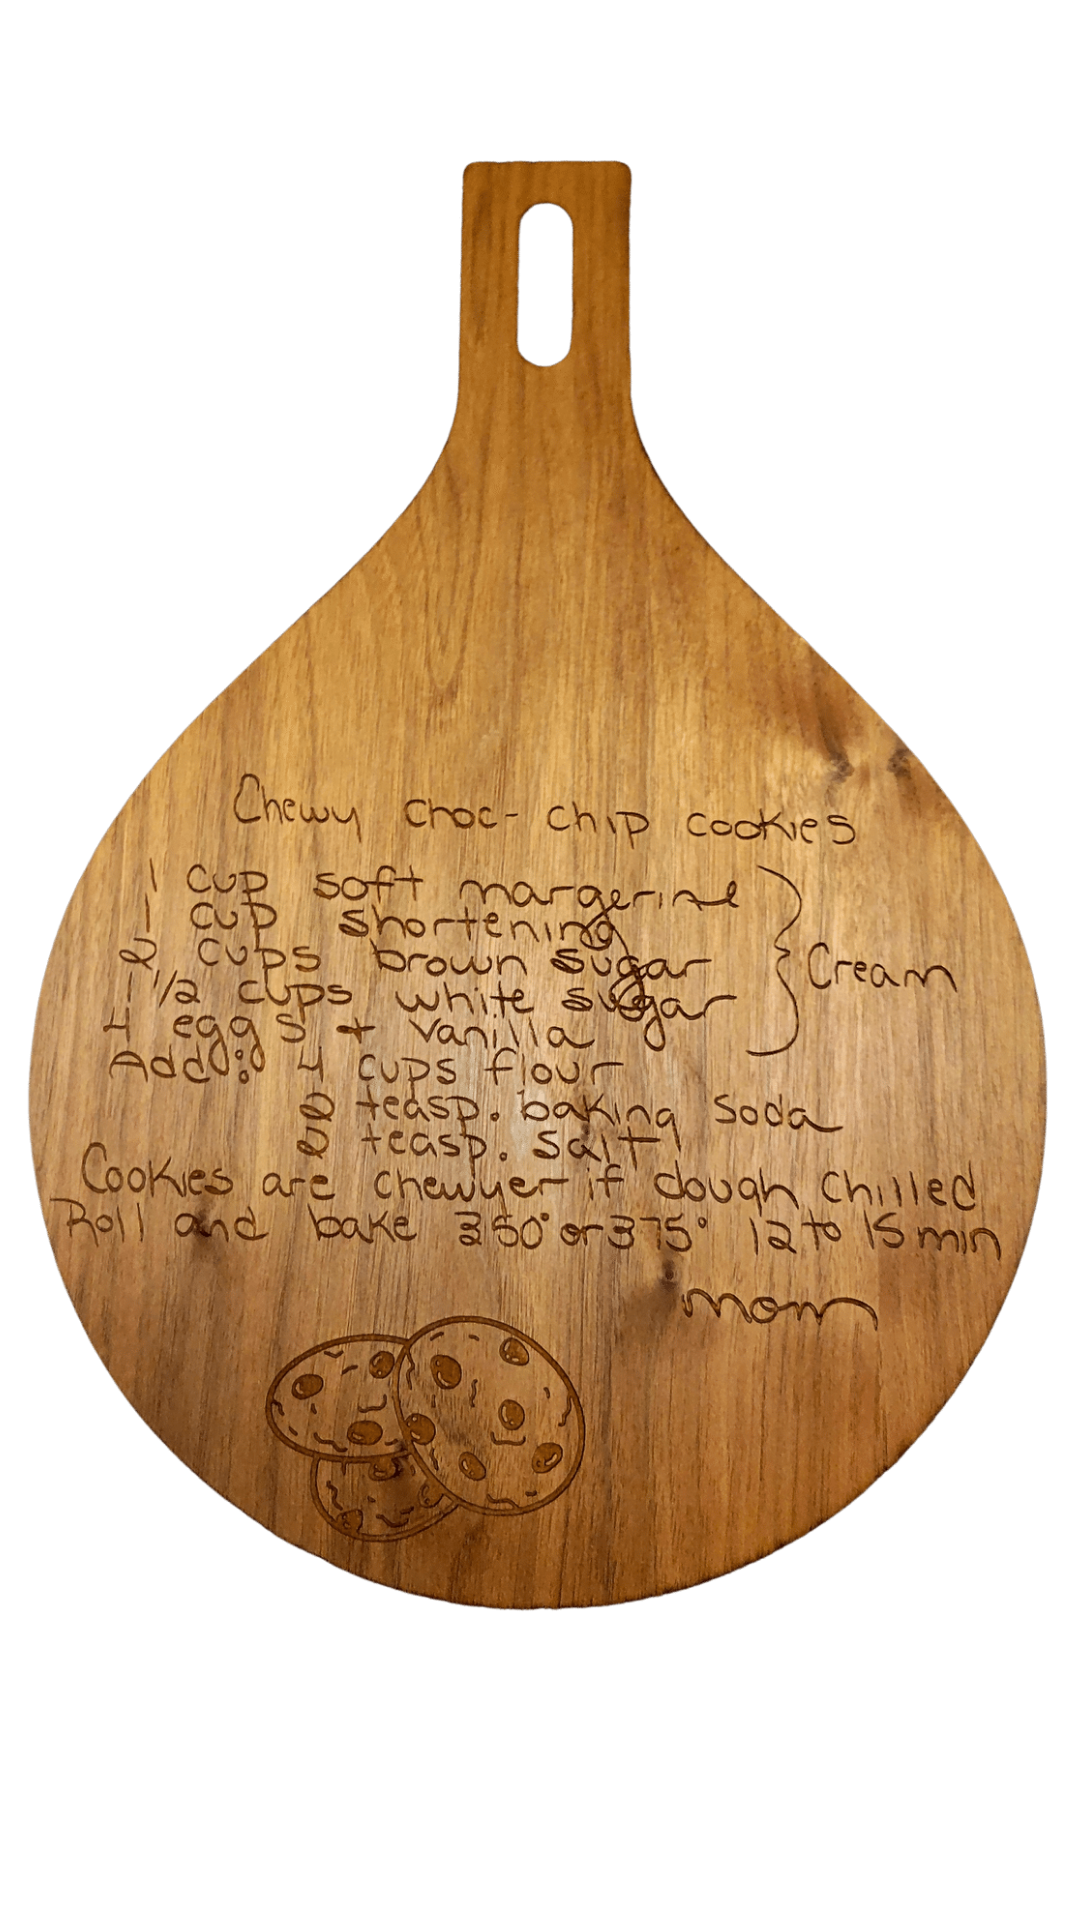 Chewy choc-chip cookies
1 cup soft margerine
1 cup shortening
2 cups brown sugar
1 1/2 cups white sugar
Cream
4 eggs + vanilla
Add: 4 cups flour
2 teasp. baking soda
2 teasp. salt
Cookies are chewyer if dough chilled
Roll and bake 350° or 375° 12 to 15 min
mom